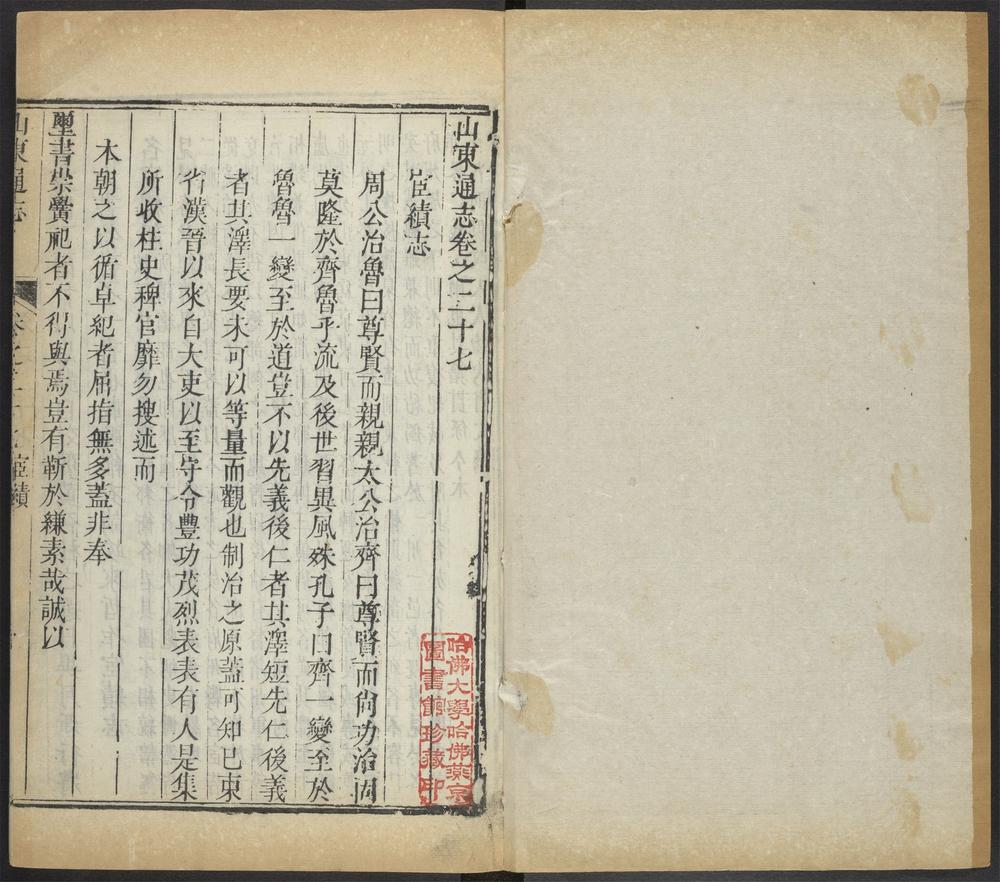 山東通志卷之二十七
宦績志
周公治魯曰尊賢而親親太公治齊曰尊賢而尙功治固
莫隆於齊魯乎流及後世習異風殊孔子曰齊一變至於
魯魯一變至於道豈不以先義後仁者其澤短先仁後義
者其澤長要未可以等量而觀也制治之原蓋可知已東
省漢晉以來自大吏以至守令豐功茂烈表表有人是集
所收柱史稗官靡勿搜述而
本朝之以循卓紀者屈指無多蓋非奉
璽書崇黌祀者不得與焉豈有靳於縑素哉誠以
山東通志
卷之二十七宦績
哈佛大學哈佛燕京
圖書館珍藏印